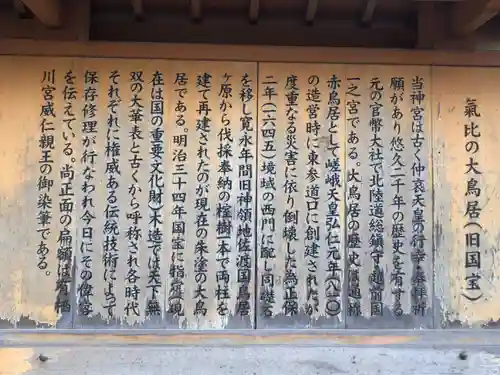 氣比の大鳥居(旧国宝)
当神宮は古く仲哀天皇の行幸・参拝祈
願があり悠久二千年の歴史を有する
元の官幣大社で北陸道総鎮守越前国
一之宮である。大鳥居の歴史は通称
赤鳥居として嵯峨天皇弘仁元年(八一〇)
の造営時に東参道口に創建されたが
度重なる災害に依り倒壊した為正保
二年(一六四五)境域の西門に配し同礎石
を移し寛永年間旧神領地佐渡国鳥居
ケ原から伐採奉納の榁樹一本で両柱を
建て再建されたのが現在の朱塗の大鳥
居である。明治三十四年国宝に指定(現
在は国の重要文化財)木造では天下無
双の大華表と古くから呼称され各時代
それぞれに権威ある伝統技術によって
保存修理が行なわれ今日にその偉容
を伝えている。尚正面の扁額は有栖
川宮威仁親王の御染筆である。